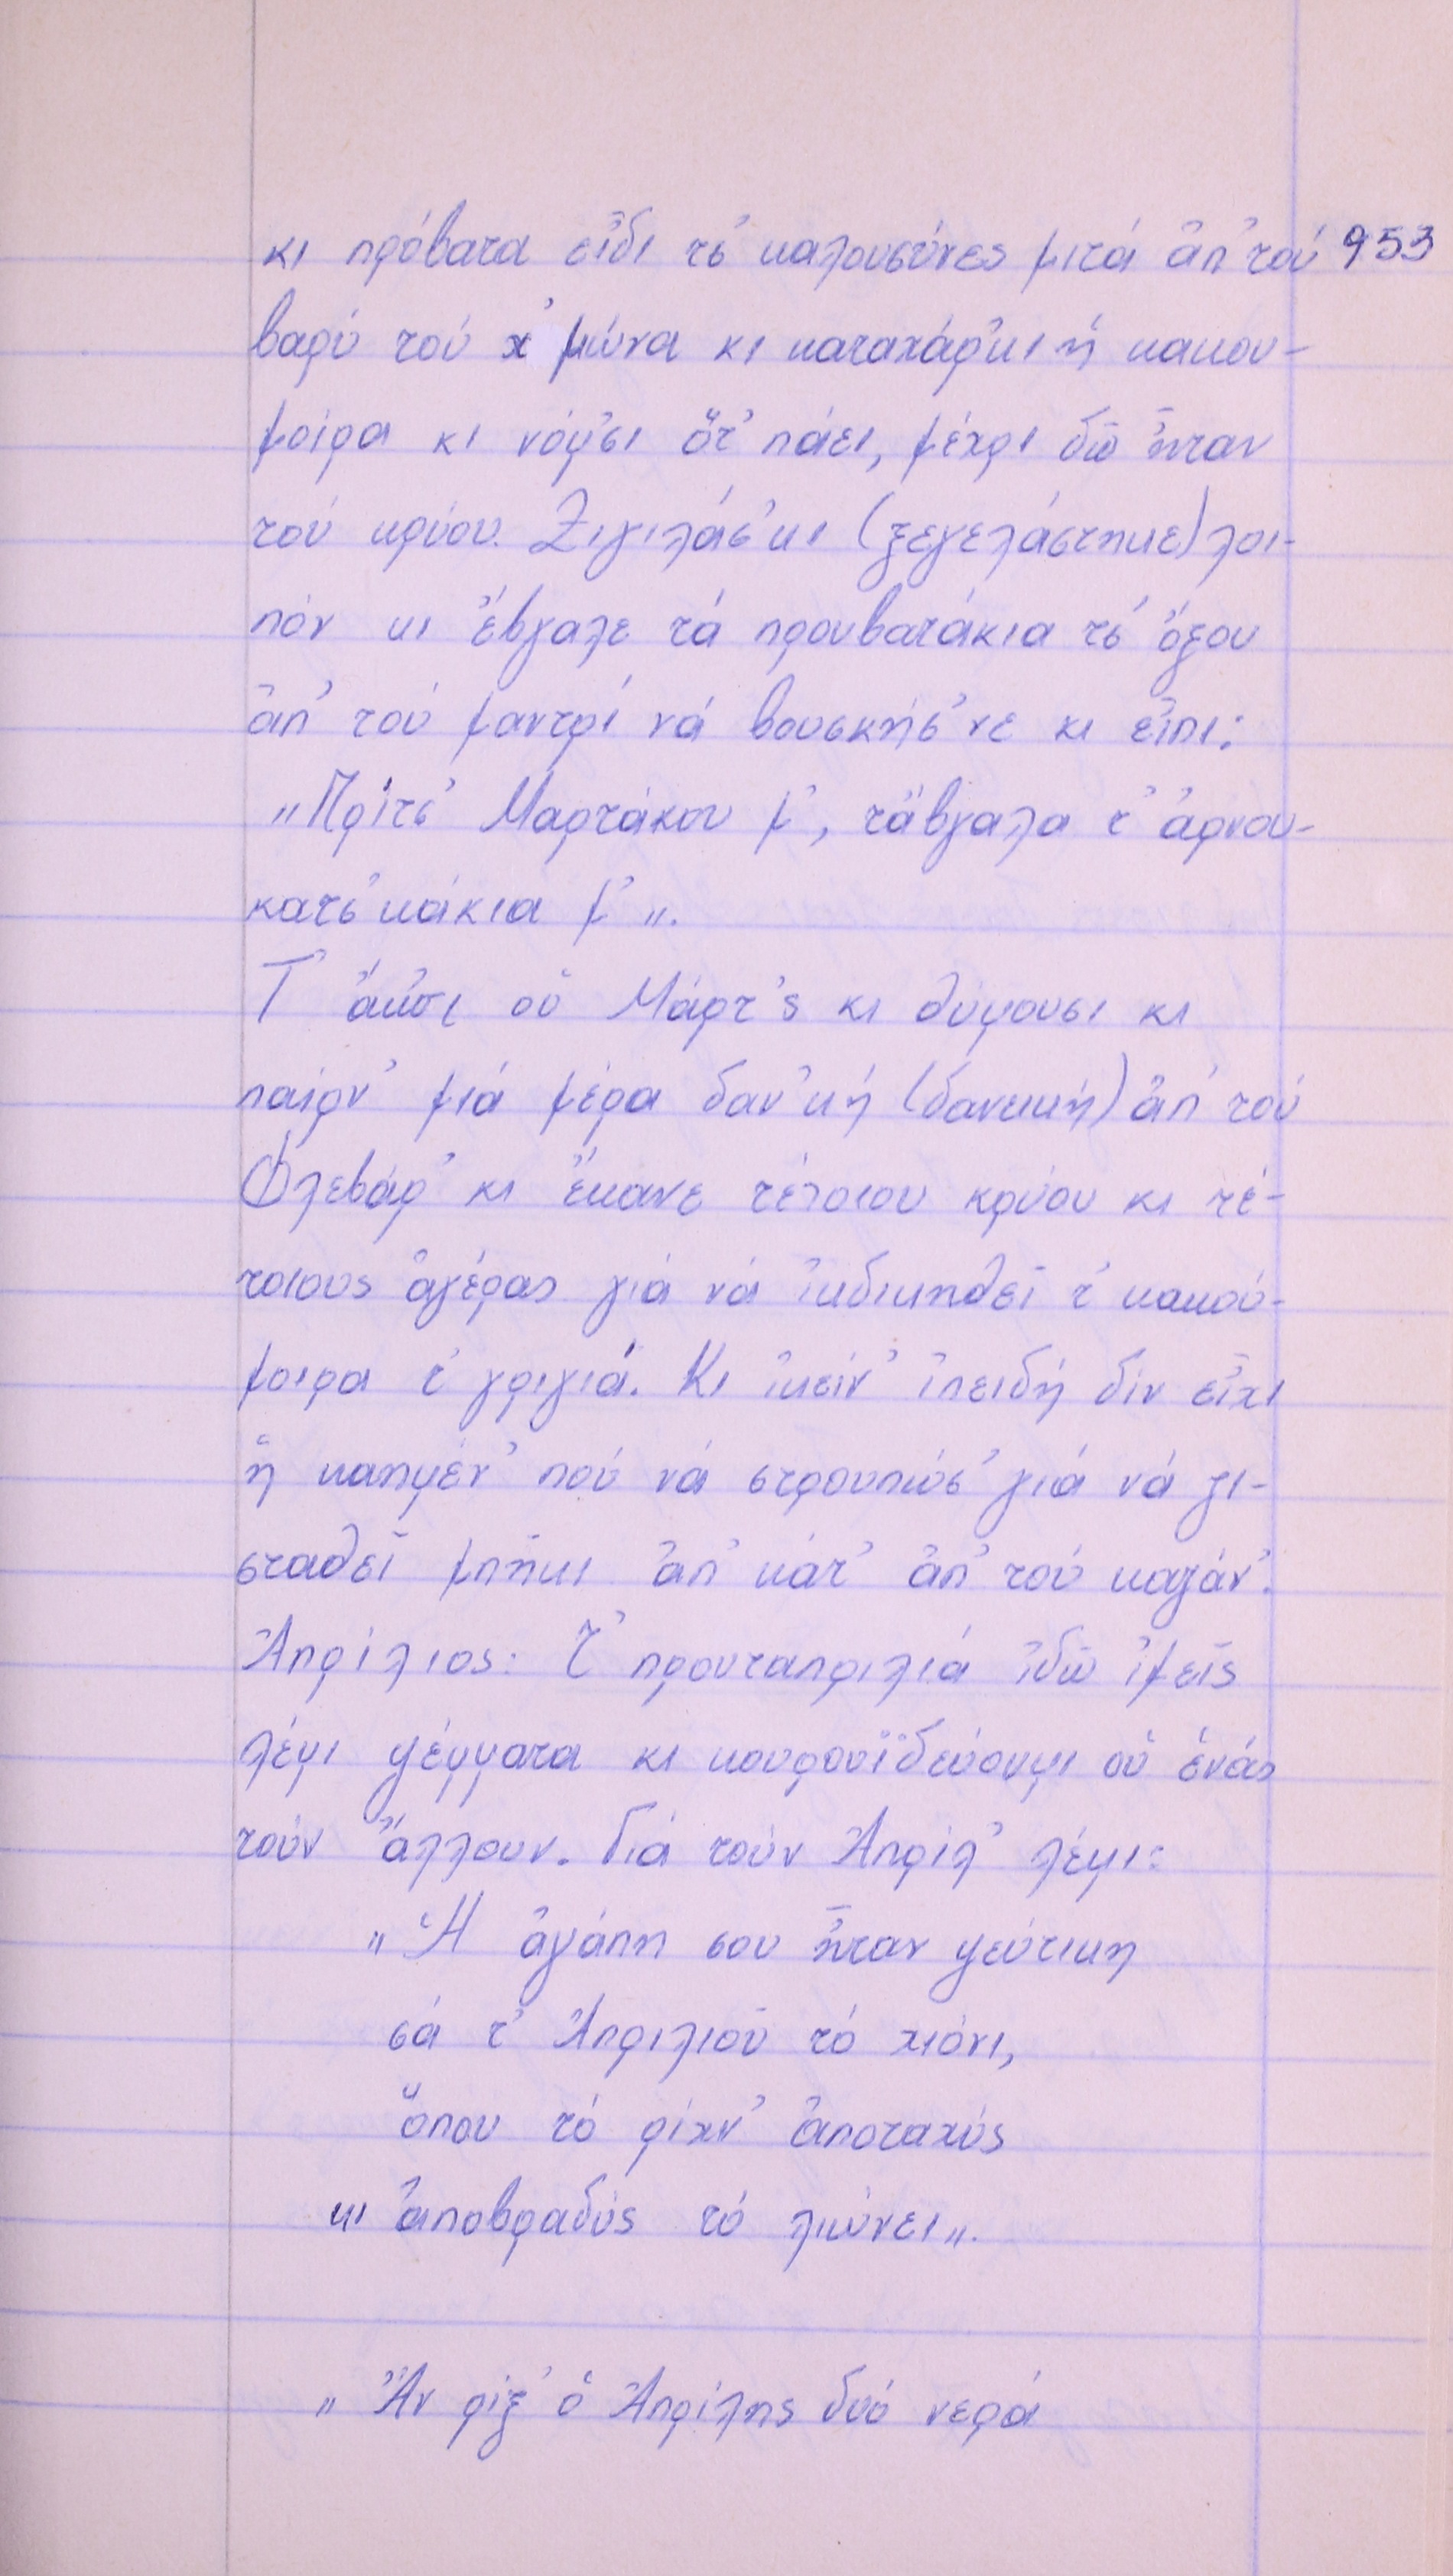 κι πρόβατα εἶδι τς̓ καλουσύνες μιτά ἀπ᾿ τού 953
βαρύ τού χ᾿ μώνα κι καταχάρ᾿κι ἡ κακου-
μοίρα κι νόμ᾿σι ὅτ᾿ πάει, μέχρι δῶ ἦταν
τού κρύου. Ξιγιλάσ᾿κι (ξεγελάστηκε) λοι-
πόν κι ἔβγαλε τά προυβατάκια τς̓ ὄξου
ἀπ᾿ τού μαντρί νά βουσκήσ᾿νε κι εἶπι:
„Πρίτσ᾿ Μαρτάκου μ᾿, τἄβγαλα τ᾿ ἀρνου-
κατσ᾿κάκια μ᾿„.
Τ᾿ ἄκ᾿σι οὑ Μάρτ᾿ς κι θύμουσι κι
παίρν᾿ μιά μέρα δαν᾿κή (δανεική) ἀπ᾿ τού
Φλεβάρ᾿ κι ἔκανε τέτοιου κρύου κι τέ-
τοιους ἀγέρας γιά νά ἰκδικηθεῖ τ᾿ κακού-
μοιρα τ᾿ γριγιά. Κι ἰκείν᾿ ἰπειδή δίν εἶχι
ἡ καημέν᾿ πού νά στρουπώσ᾿ γιά νά ζι-
σταθεῖ μπῆκι ἀπ᾿ κάτ᾿ ἀπ᾿ τού καζάν᾿.
Ἀπρίλιος: Τ᾿ προυταπριλιά ἰδῶ ἰμεῖς
λέμι ψέμματα κι κουροϊδεύουμι οὑ ἑνάς
τούν ἄλλουν. Γιά τούν Ἀπρίλ᾿ λέμι:
„Ἡ ἀγάπη σου ἦταν ψεύτικη
σά τ᾿ Ἀπριλιοῦ τό χιόνι,
ὅπου τό ρίχν᾿ ἀποταχύς
κι ἀποβραδύς τό λιώνει„.
„Ἄν ρίξ᾿ ὁ Ἀπρίλης δυό νερά